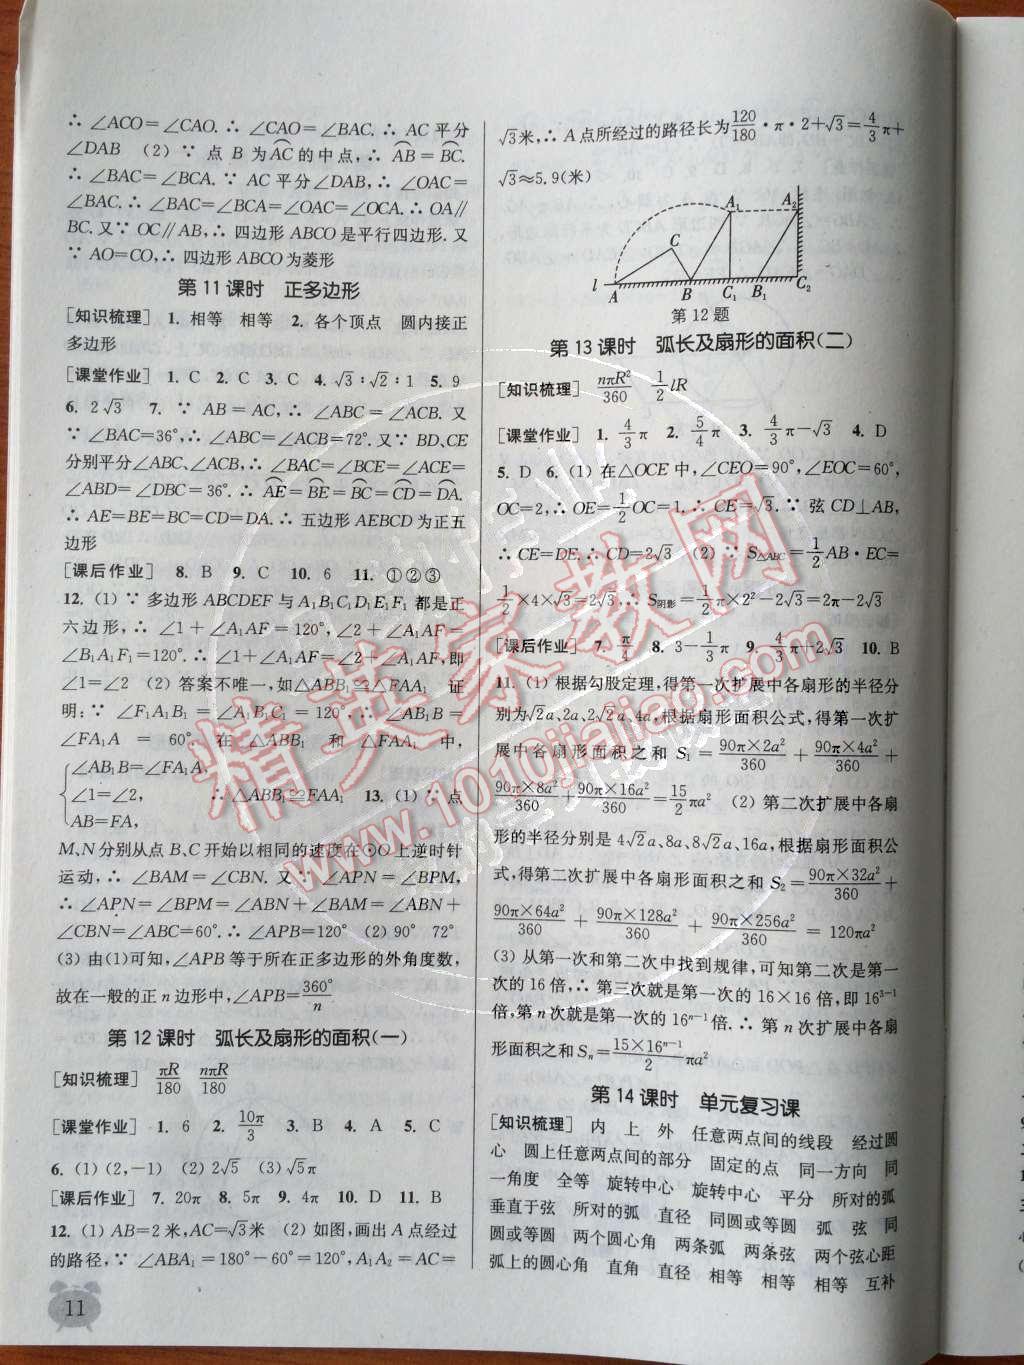 ∴ ∠ACO=∠CAO. ∴ ∠CAO=∠BAC. ∴ AC 平分
∠DAB (2) ∵ 点 B 为AC的中点, ∴ AB=BC.
∴ ∠BAC=∠BCA. ∵ AC 平分∠DAB, ∴ ∠OAC=
∠BAC. ∴ ∠BAC=∠BCA=∠OAC=∠OCA. ∴ OA∥
BC. 又∵ OC∥AB, ∴ 四边形 ABCO 是平行四边形. 又
∵ AO=CO, ∴ 四边形 ABCO 为菱形
第 11 课时 正多边形
[知识梳理] 1. 相等 相等 2. 各个顶点 圆内接正
多边形
[课堂作业] 1. C 2. C 3. C 4. √3∶√2∶1 5. 9
6. 2√3 7. ∵ AB=AC, ∴ ∠ABC=∠ACB. 又
∵ ∠BAC=36°, ∴ ∠ABC=∠ACB=72°. 又∵ BD、CE
分别平分∠ABC、∠ACB, ∴ ∠BAC=∠BCE=∠ACE=
∠ABD=∠DBC=36°. ∴ AE=BE=BC=CD=DA.
∴ AE=BE=BC=CD=DA. ∴ 五边形 AEBCD 为正五
边形
[课后作业] 8. B 9. C 10. 6 11. ①②③
12. (1) ∵ 多边形 ABCDEF 与 A₁B₁C₁D₁E₁F₁ 都是正
六边形, ∴ ∠1+∠A₁AF=120°, ∠2+∠A₁AF=
∠B₁A₁F₁=120°. ∴ ∠1+∠A₁AF=∠2+∠A₁AF, 即
∠1=∠2 (2) 答案不唯一, 如△ABB₁≌△FAA₁ 证
明: ∵ ∠F₁A₁B₁=∠A₁B₁C₁=120°, ∴ ∠AB₁B=
∠FA₁A=60°. 在△ABB₁ 和△FAA₁ 中,
∠AB₁B=∠FA₁A,
∠1=∠2, ∴ △ABB₁≌△FAA₁ 13. (1) ∵ 点
AB=FA,
M、N 分别从点 B、C 开始以相同的速度在⊙O 上逆时针
运动, ∴ ∠BAM=∠CBN. 又∵ ∠APN=∠BPM,
∴ ∠APN=∠BPM=∠ABN+∠BAM=∠ABN+
∠CBN=∠ABC=60°. ∴ ∠APB=120° (2) 90° 72°
(3) 由(1)可知, ∠APB 等于所在正多边形的外角度数,
故在一般的正 n 边形中, ∠APB=360°/n
第 12 课时 弧长及扇形的面积(一)
[知识梳理] πR/180 nπR/180
[课堂作业] 1. 6 2. 10π/3 3. B 4. A 5. C
6. (1) (2,-1) (2) 2√5 (3) √5π
[课后作业] 7. 20π 8. 5π 9. 4π 10. D 11. B
12. (1) AB=2 米, AC=√3米 (2) 如图, 画出 A 点经过
的路径, ∵ ∠ABA₁=180°-60°=120°, A₁A₂=AC=
11
√3米, ∴ A 点所经过的路径长为120/180·π·2+√3=4/3π+
√3≈5.9(米)
A₁ A₂
C
l A B C₁ B₁ C₂
第 12 题
第 13 课时 弧长及扇形的面积(二)
[知识梳理] nπR²/360 1/2lR
[课堂作业] 1. 4/3π 2. 5/4π 3. 4/3π-√3 4. D
5. D 6. (1) 在△OCE 中, ∠CEO=90°, ∠EOC=60°,
OC=2, ∴ OE=1/2OC=1. ∴ CE=√3. ∵ 弦 CD⊥AB,
∴ CE=DE. ∴ CD=2√3 (2) ∵ S△ABC=1/2AB·EC=
1/2×4×√3=2√3, ∴ S阴影=1/2π×2²-2√3=2π-2√3
[课后作业] 7. π/4 8. 3-1/3π 9. 4/3π-2√3 10. B
11. (1) 根据勾股定理, 得第一次扩展中各扇形的半径分
别为√2a、2a、2√2a、4a, 根据扇形面积公式, 得第一次扩
展中各扇形面积之和 S₁=90π×2a²/360+90π×4a²/360+
90π×8a²/360+90π×16a²/360=15/2πa² (2) 第二次扩展中各扇
形的半径分别是 4√2a、8a、8√2a、16a, 根据扇形面积公
式, 得第二次扩展中各扇形面积之和 S₂=90π×32a²/360+
90π×64a²/360+90π×128a²/360+90π×256a²/360=120πa²
(3) 从第一次和第二次中找到规律, 可知第二次是第一
次的 16 倍, ∴ 第三次就是第一次的 16×16 倍, 即 16³⁻¹
倍, 第 n 次就是第一次的 16ⁿ⁻¹倍. ∴ 第 n 次扩展中各扇
形面积之和 Sₙ=15×16ⁿ⁻¹/2πa²
第 14 课时 单元复习课
[知识梳理] 内 上 外 任意两点间的线段 经过圆
心 圆上任意两点间的部分 固定的点 同一方向 同
一角度 全等 旋转中心 旋转中心 平分 所对的弧
垂直于弦 所对的弧 直径 同圆或等圆 弧 弦 同
圆或等圆 两个圆心角 两条弧 两条弦 两个弦心距
弧上的圆心角 直角 直径 相等 相等 相等 互补
精英家教网
www.1010jiajiao.com